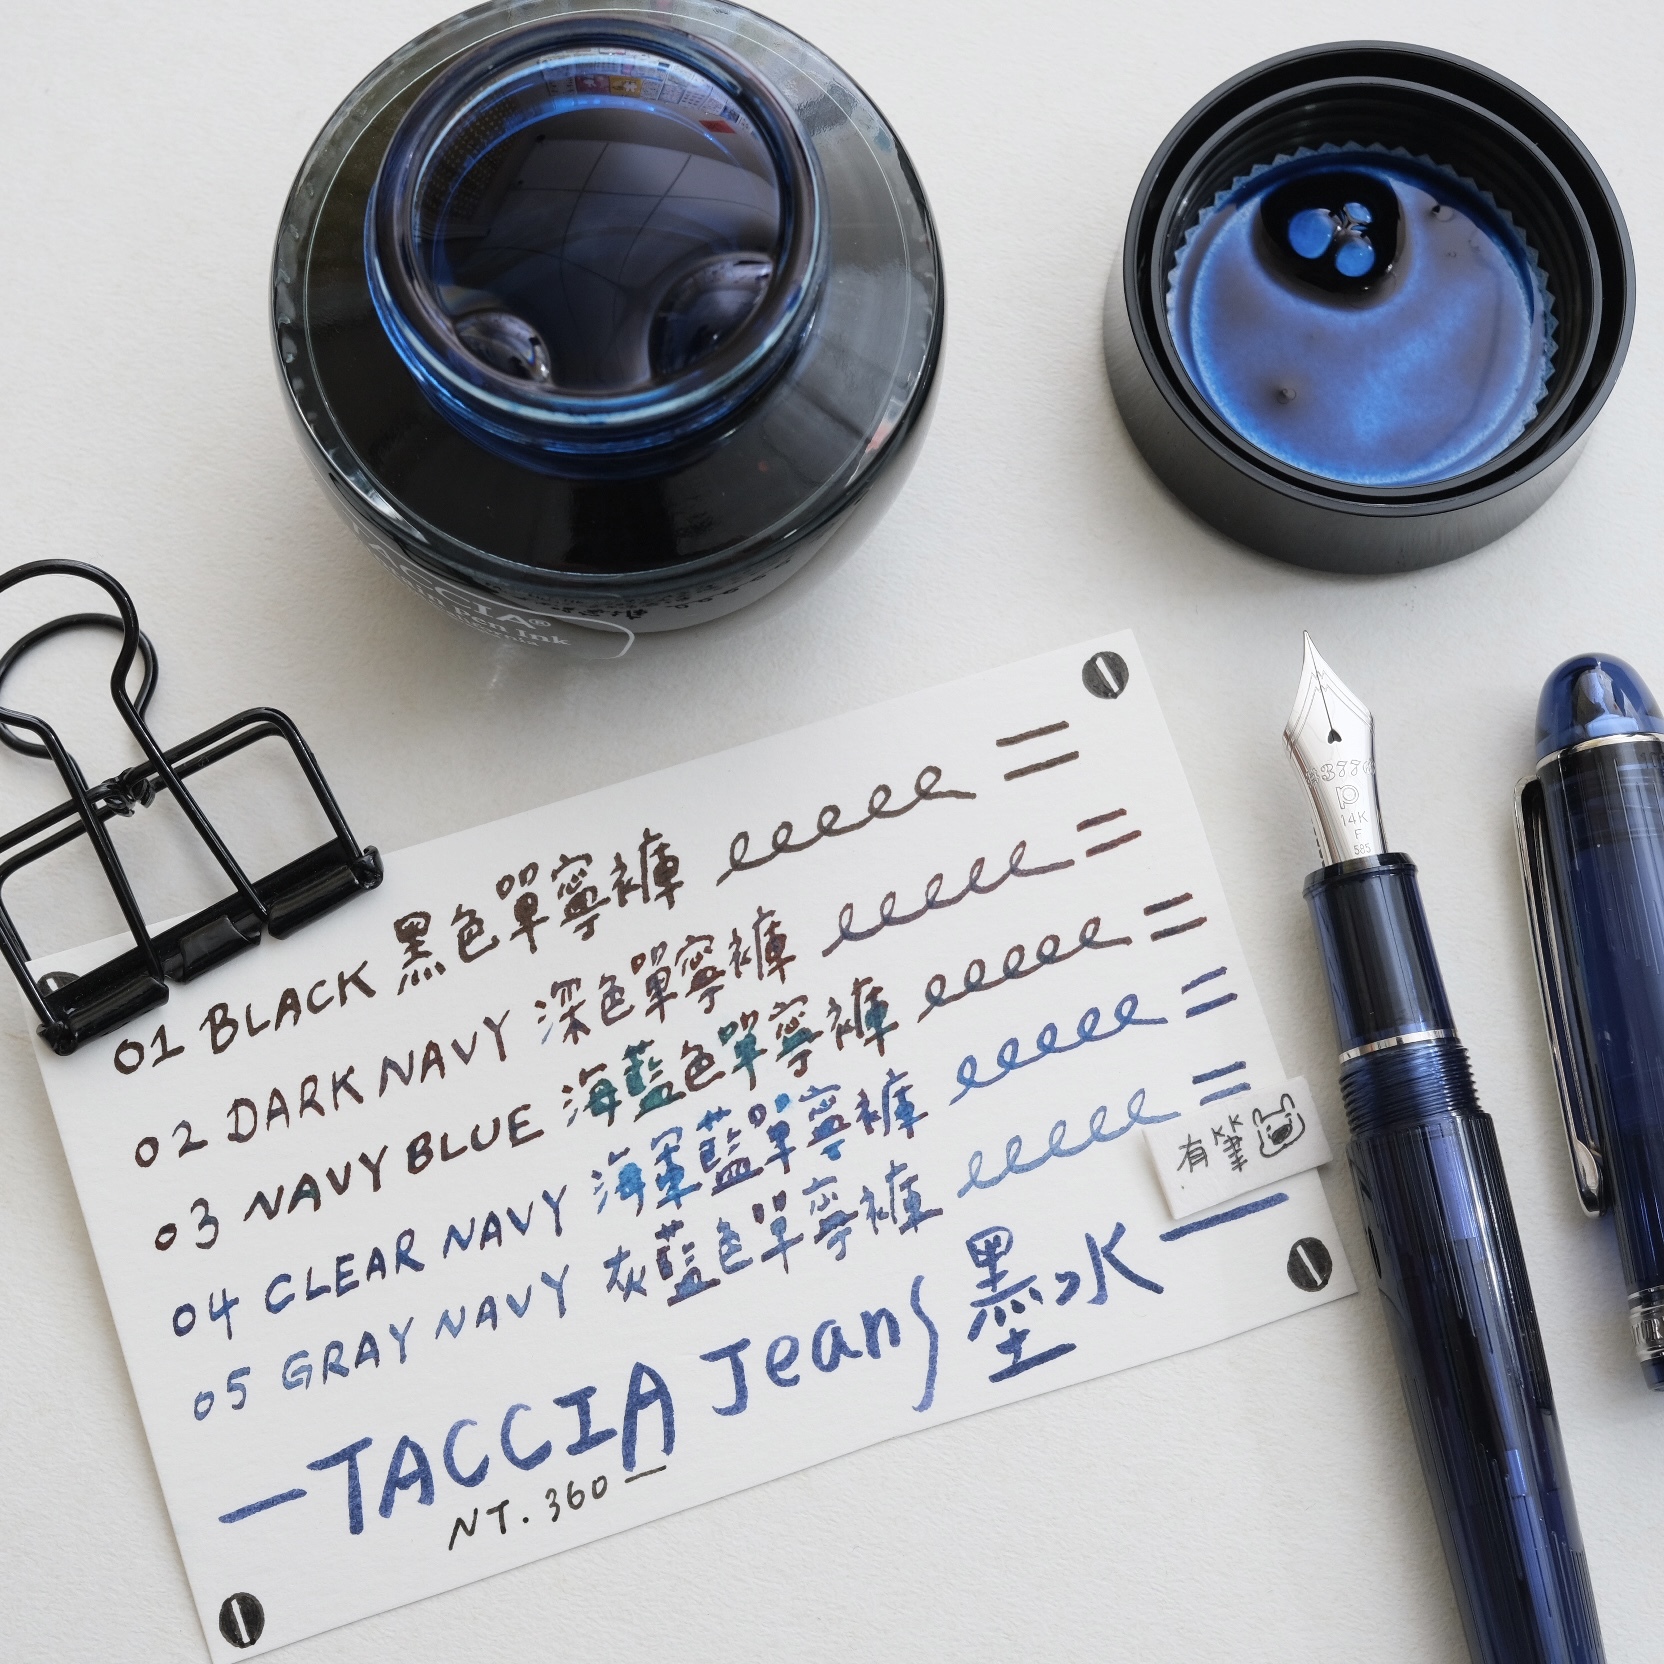 TACCIA®
Pen Ink
01 BLACK 黑色單寧褲
02 DARK NAVY 深色單寧褲
03 NAVY BLUE 海藍色單寧褲
04 CLEAR NAVY 海軍藍單寧褲
05 GRAY NAVY 灰藍色單寧褲
—TACCIA Jeans 墨水—
NT. 360—
有筆
#3776
P
14K
F
585